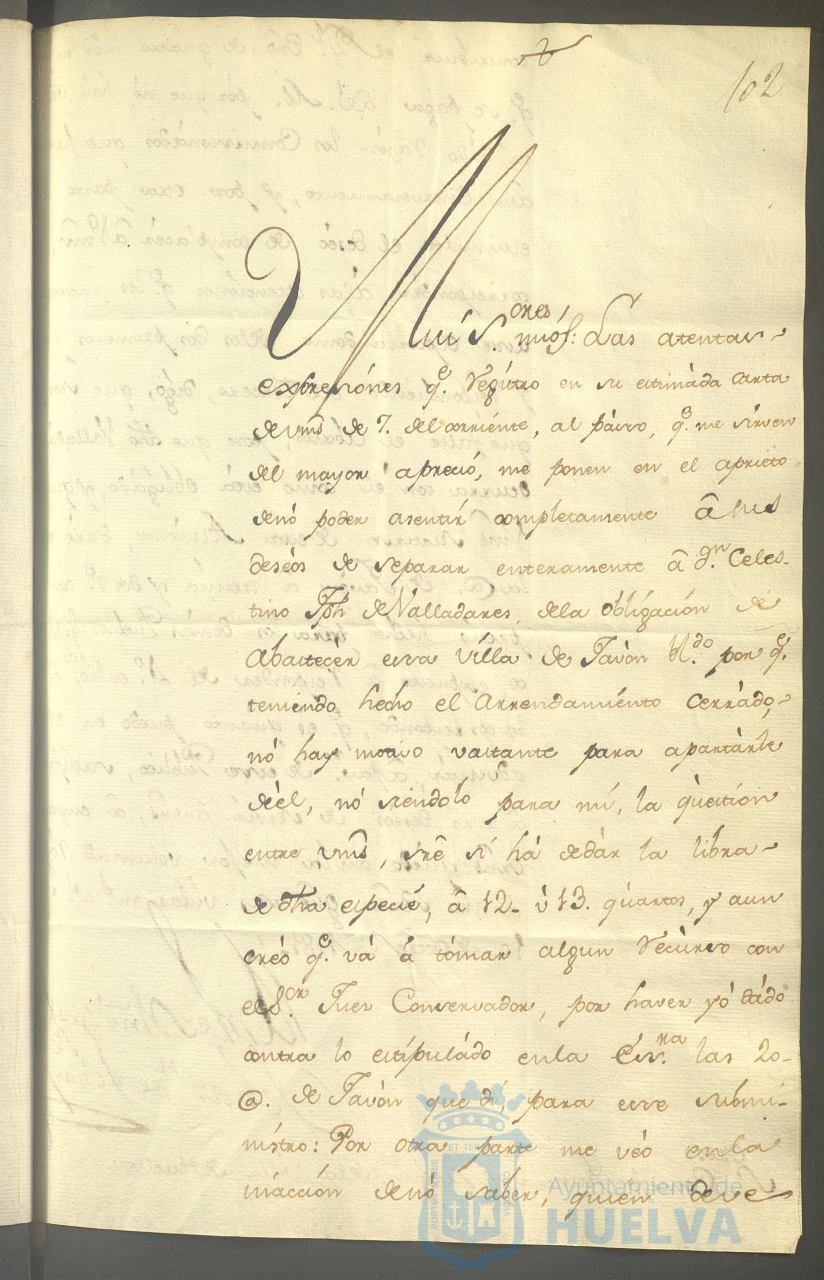 102
Mui S.ores mios: Las atentas
expresiónes q.e Registro en su estimáda carta
de vms de 7. del corriénte, al páso, q.e me sirven
del mayor apreció, me ponen en el aprieto
denó poder asentir completamente â sus
deséos de separar enteramente â d.n Celes-
tino Jph de Valladares, dela obligación de
Abastecér essa Villa de Javòn bl.do por q.e
teniendo hecho el Arrendamiénto Cerrádo,
nó hay motivo vastante para apartárle
deèl, nó siendolo para mi, la qùestion
entre vms, sre si há dedár la libra
de dha especié, â 12. ù 13. quartos, y aun
créo q.e vá á tómar algun Recùrso con
el S.or Juez Conservador, por haver yó dádo
contra lo estipuládo enla Esv.ra las 20-
@. de Javòn que dí, para esse submi-
nistro: Por otra parte me véo enla
inacción denó saber, quien deve
Ayuntamiento de
HUELVA